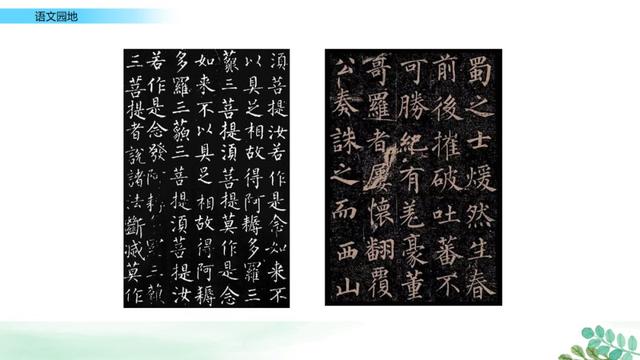 语文园地
須菩提汝若作是念如來不
以具足相故得阿耨多羅三
藐三菩提須菩提莫作是念
如來不以具足相故得阿耨
多羅三藐三菩提須菩提汝
若作是念發阿耨多羅三藐
三菩提者說諸法斷滅莫作
蜀之士煖然生春
前後摧破吐蕃不
可勝紀有羌豪董
哥羅者屢懷翻覆
公奏誅之而西山